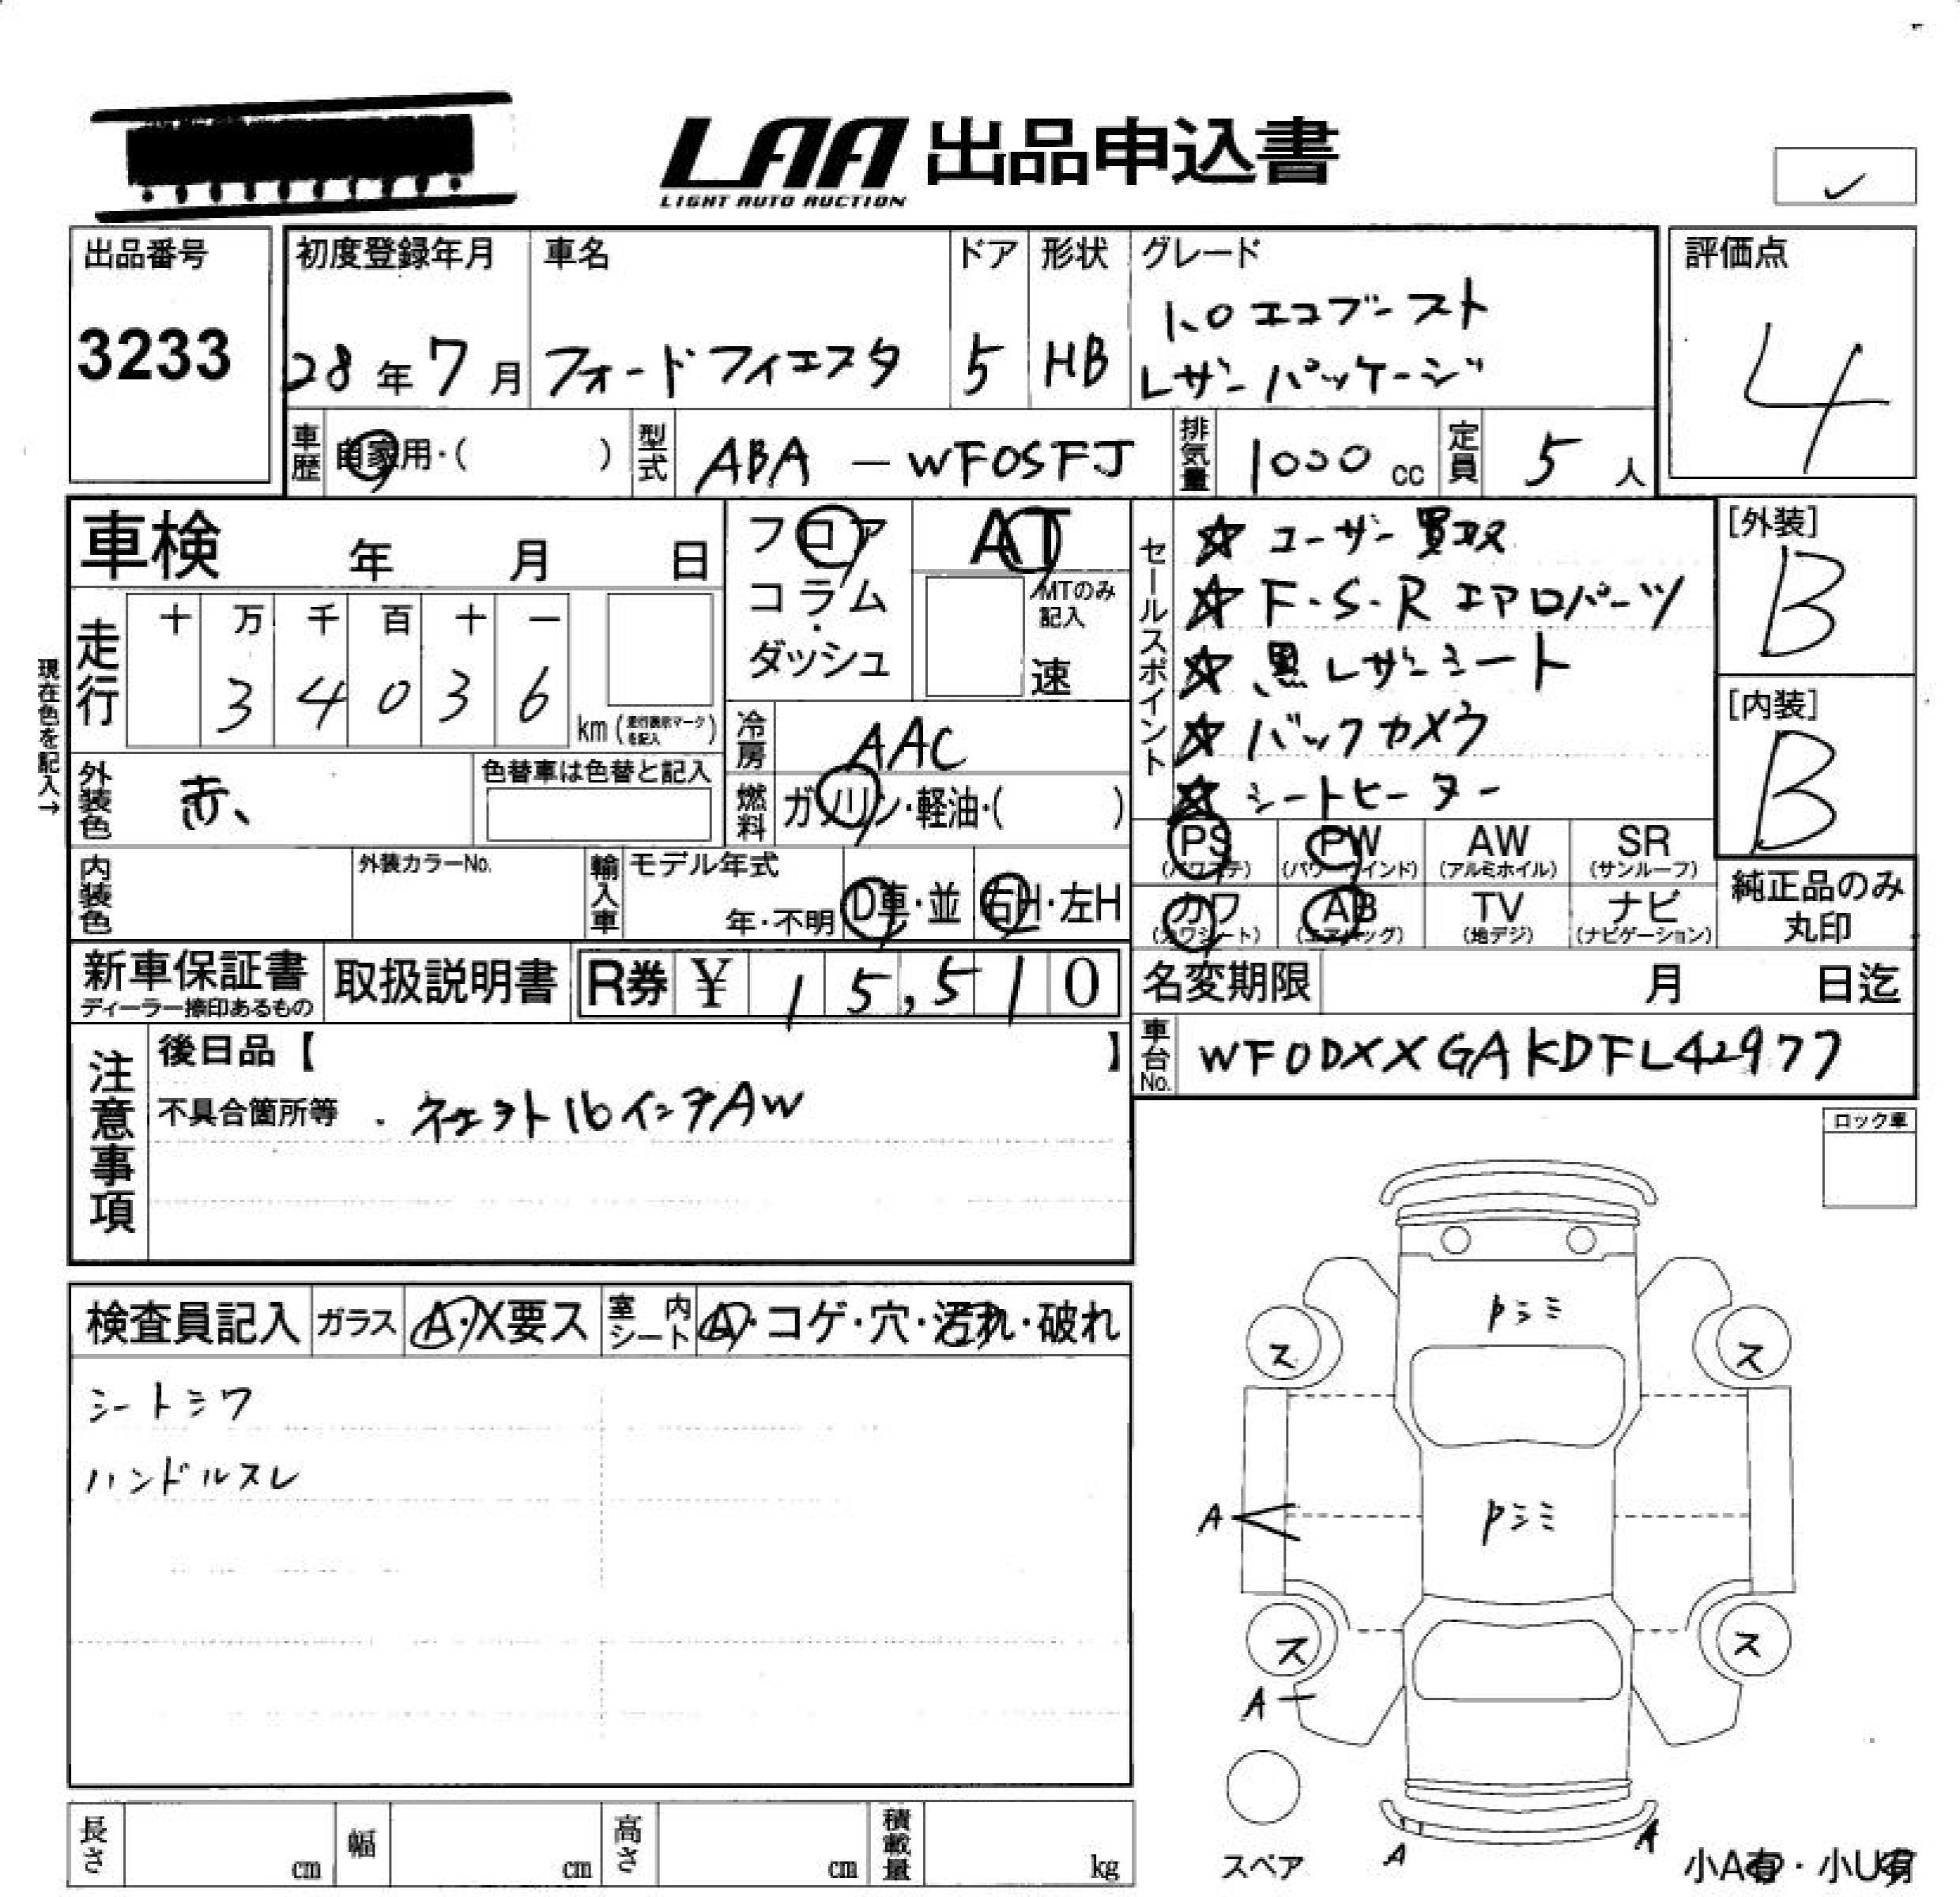 LAA 出品申込書
LIGHT AUTO AUCTION
出品番号
3233
初度登録年月
28年7月
車名
フォードフィエスタ
ドア
5
形状
HB
グレード
1.0エコブースト
レザーパッケージ
評価点
4
車歴
自家用・( )
型式
ABA - WF0SFJ
排気量
1000 cc
定員
5人
車検 年 月 日
フロア
コラム
・
ダッシュ
AT
MTのみ
記入
速
セールスポイント
☆ ユーザー買取
☆ F・S・R エアロパーツ
☆ 黒レザーシート
☆ バックカメラ
☆ シートヒーター
[外装]
B
[内装]
B
現在色を記入→
走行
十 万 千 百 十 一
3 4 0 3 6
km (走行表示マークを記入)
冷房
AAC
外装色
赤、
色替車は色替と記入
燃料
ガソリン・軽油・( )
PS
(パワステ)
PW
(パワーウインド)
AW
(アルミホイル)
SR
(サンルーフ)
カワ
(カワシート)
AB
(エアバッグ)
TV
(地デジ)
ナビ
(ナビゲーション)
純正品のみ
丸印
内装色
外装カラーNo.
輸入車
モデル年式
年・不明
D車・並
右H・左H
新車保証書
ディーラー捺印あるもの
取扱説明書
R券 ¥ 15,510
名変期限 月 日迄
車台No.
WF0DXXGAKDFL42977
注意事項
後日品【 】
不具合箇所等 ・ 16インチAW
ロック車
検査員記入
ガラス
A・X要ス
室内シート
A・コゲ・穴・汚れ・破れ
シートシワ
ハンドルスレ
Pシミ
ス
ス
A
Pシミ
ス
ス
A
A
A
スペア
小A有・小U有
長さ cm
幅 cm
高さ cm
積載量 kg